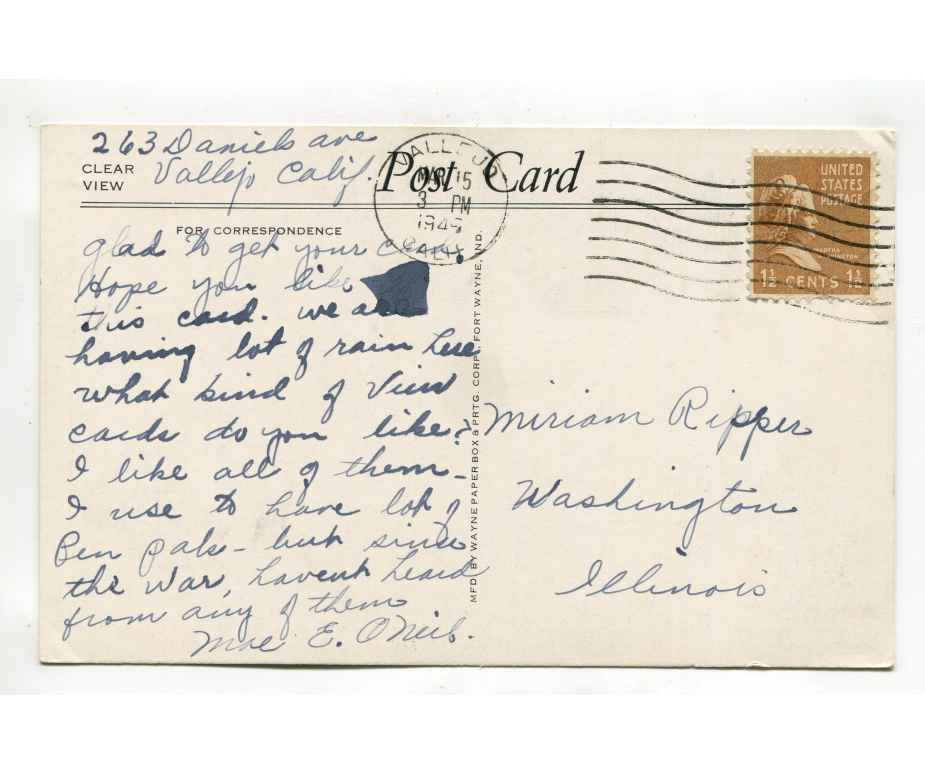 263 Daniels ave
Vallejo Calif.
CLEAR
VIEW
Post Card
FOR CORRESPONDENCE
glad to get your card.
Hope you like
this card. we are
having lot of rain here
what kind of View
cards do you like?
I like all of them -
I use to have lot of
Pen pals - but since
the war, havent heard
from any of them
Mae E. O'Neil.
MFD. BY WAYNE PAPER BOX & PRTG. CORP., FORT WAYNE, IND.
VALLEJO
MAR 15
3 PM
CALIF.
UNITED
STATES
POSTAGE
MARTHA
WASHINGTON
1½ CENTS 1½
Miriam Ripper
Washington
Illinois